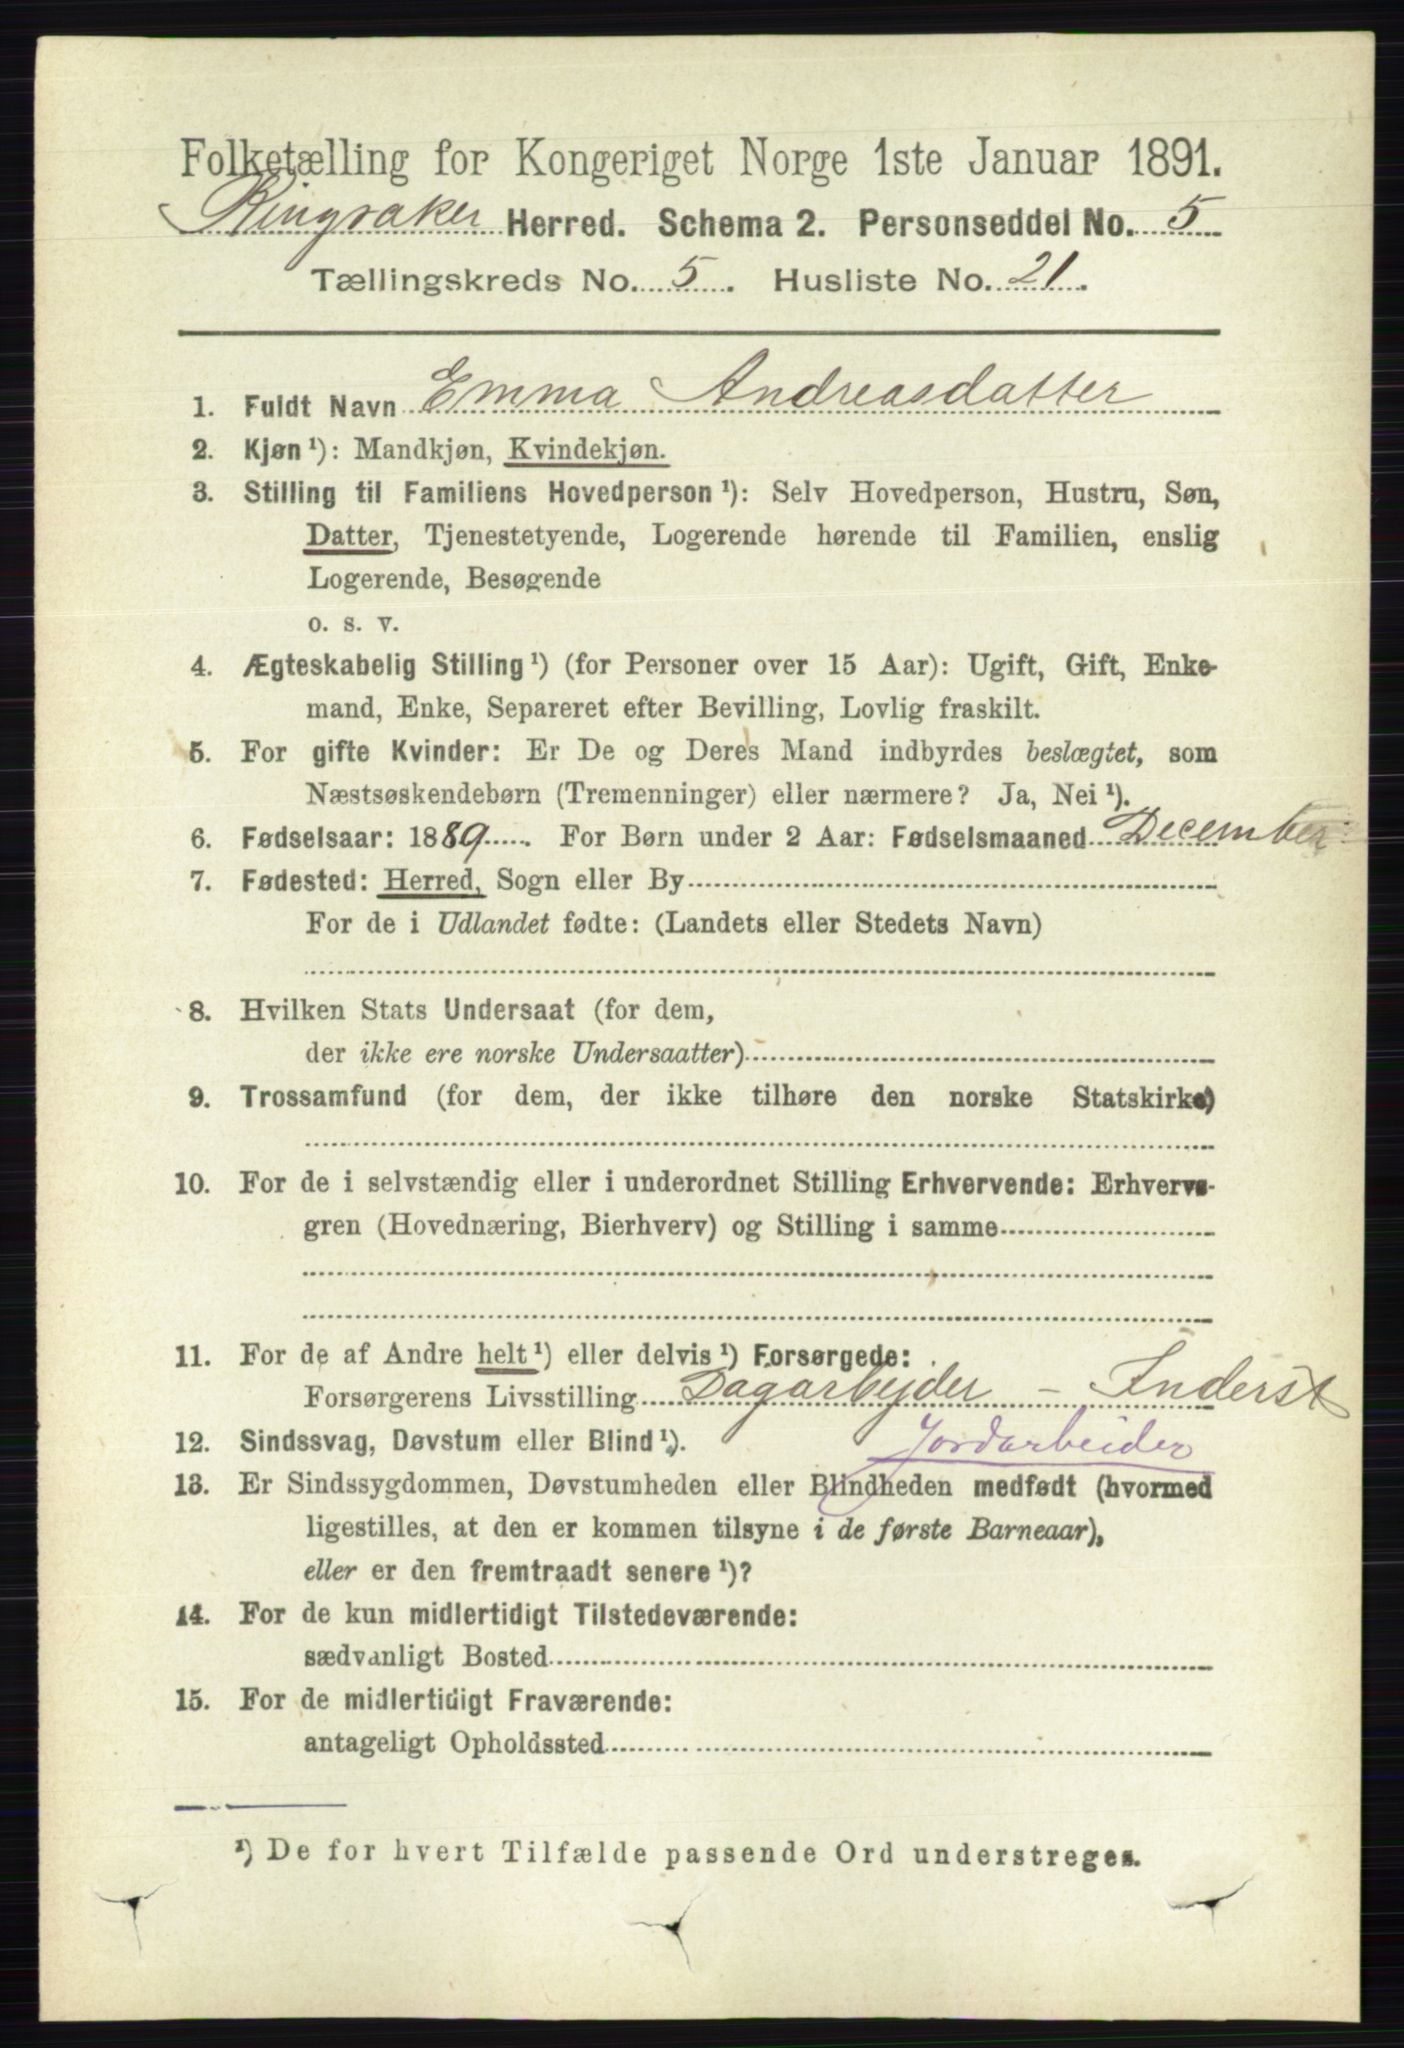 Folketælling for Kongeriget Norge 1ste Januar 1891.
Ringsaker Herred. Schema 2. Personseddel No. 5
Tællingskreds No. 5. Husliste No. 21.
1. Fuldt Navn Emma Andreasdatter
2. Kjøn¹): Mandkjøn, Kvindekjøn.
3. Stilling til Familiens Hovedperson¹): Selv Hovedperson, Hustru, Søn,
Datter, Tjenestetyende, Logerende hørende til Familien, enslig
Logerende, Besøgende
o. s. v.
4. Ægteskabelig Stilling¹) (for Personer over 15 Aar): Ugift, Gift, Enke-
mand, Enke, Separeret efter Bevilling, Lovlig fraskilt.
5. For gifte Kvinder: Er De og Deres Mand indbyrdes beslægtet, som
Næstsøskendebørn (Tremenninger) eller nærmere? Ja, Nei¹).
6. Fødselsaar: 1889. For Børn under 2 Aar: Fødselsmaaned December
7. Fødested: Herred, Sogn eller By
For de i Udlandet fødte: (Landets eller Stedets Navn)
8. Hvilken Stats Undersaat (for dem,
der ikke ere norske Undersaatter)
9. Trossamfund (for dem, der ikke tilhøre den norske Statskirke)
10. For de i selvstændig eller i underordnet Stilling Erhvervende: Erhvervs-
gren (Hovednæring, Bierhverv) og Stilling i samme
11. For de af Andre helt¹) eller delvis¹) Forsørgede:
Forsørgerens Livsstilling Dagarbejder - Inderst
Jordarbeider
12. Sindssvag, Døvstum eller Blind¹).
13. Er Sindssygdommen, Døvstumheden eller Blindheden medfødt (hvormed
ligestilles, at den er kommen tilsyne i de første Barneaar),
eller er den fremtraadt senere¹)?
14. For de kun midlertidigt Tilstedeværende:
sædvanligt Bosted
15. For de midlertidigt Fraværende:
antageligt Opholdssted
¹) De for hvert Tilfælde passende Ord understreges.